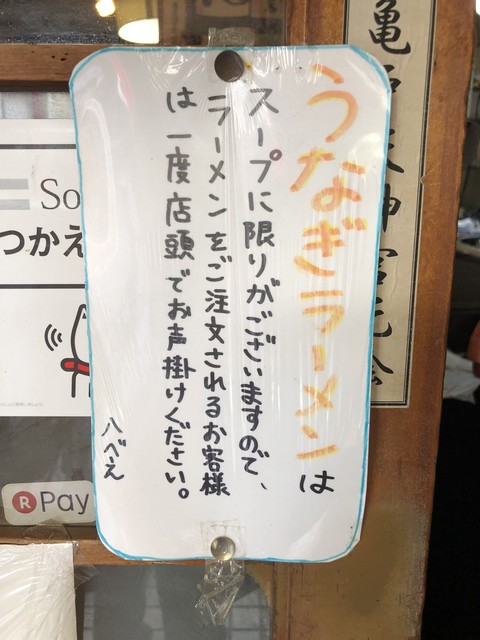 うなぎラーメンは
スープに限りがございますので、
ラーメンをご注文されるお客様
は一度店頭でお声掛けください。
八べえ
亀戸天神
So
つかえ
R Pay